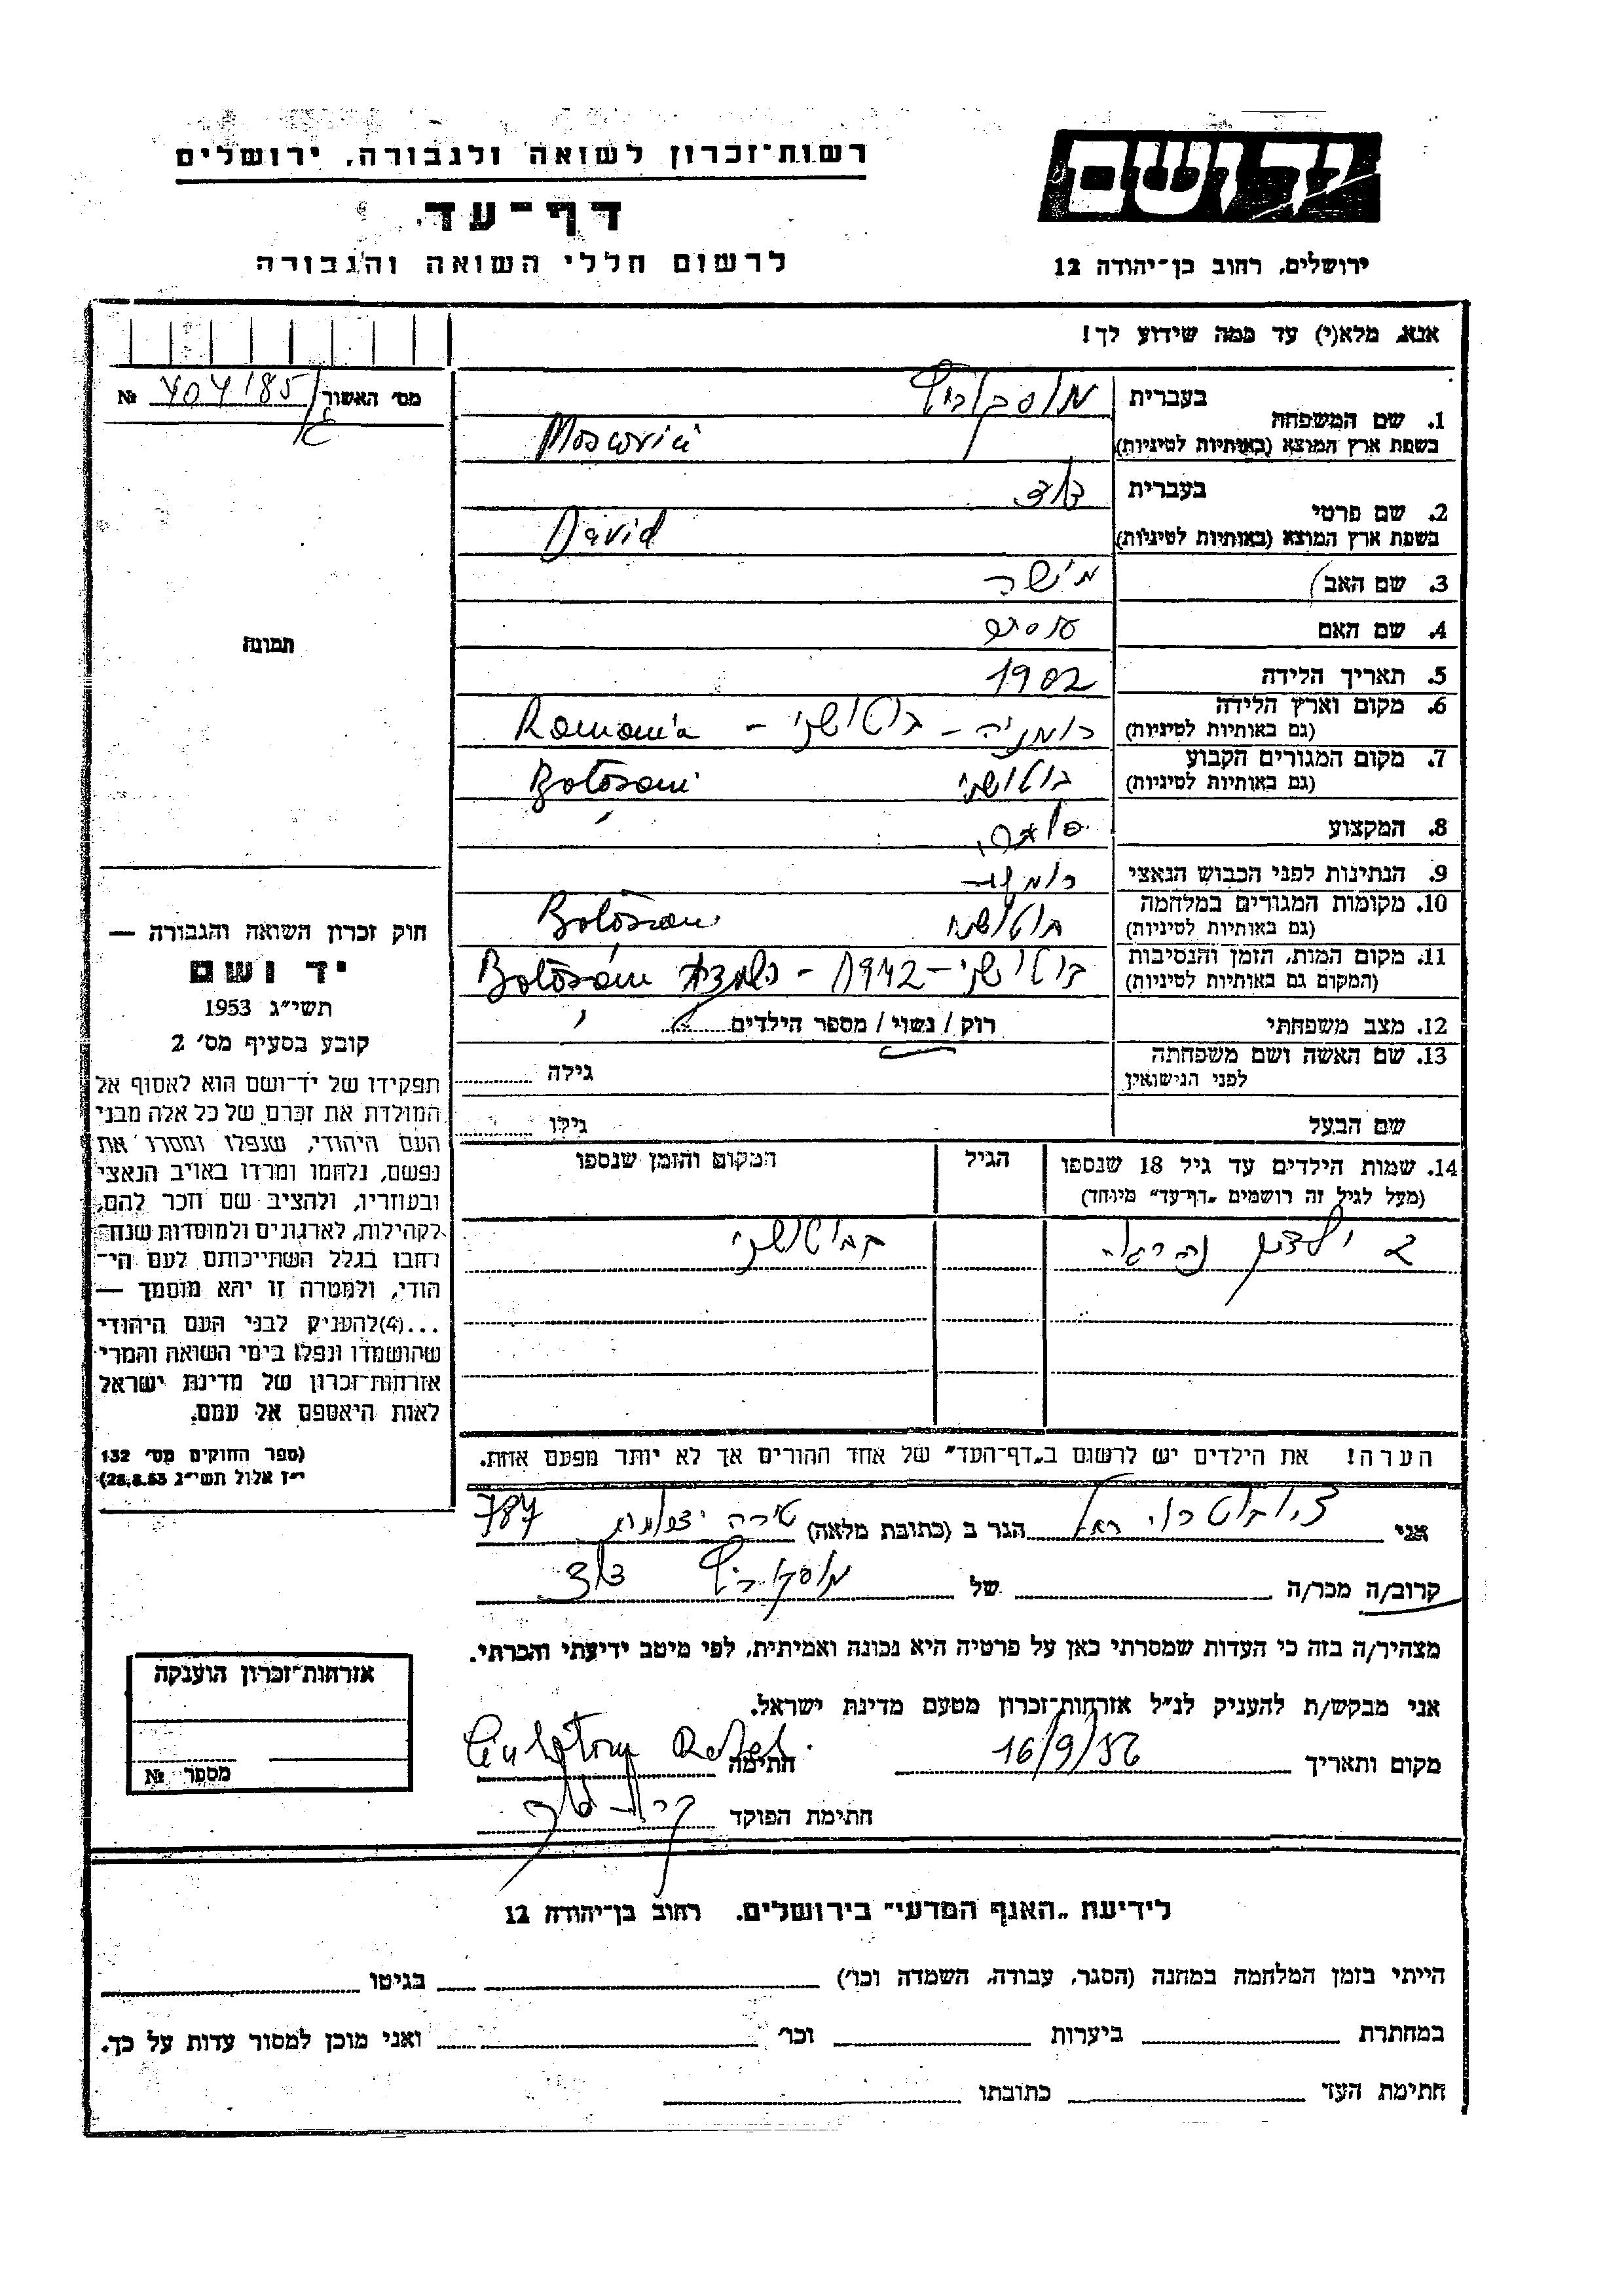 רשות־זכרון לשואה ולגבורה, ירושלים
דף־עד
לרשום חללי השואה והגבורה
יד ושם
ירושלים, רחוב בן־יהודה 12
אנא, מלא(י) עד כמה שידוע לך!
מס׳ האשור 404185 №
1. שם המשפחה בעברית מוסקוביץ
בשפת ארץ המוצא (באותיות לטיניות) Moscovici
2. שם פרטי בעברית דוד
בשפת ארץ המוצא (באותיות לטיניות) David
3. שם האב
4. שם האם
5. תאריך הלידה 1902
6. מקום וארץ הלידה רומניה - בוטושני - Romania
(גם באותיות לטיניות)
7. מקום המגורים הקבוע בוטושני Botosani
(גם באותיות לטיניות)
8. המקצוע
9. הנתינות לפני הכבוש הנאצי
10. מקומות המגורים במלחמה בוטושני Botosani
(גם באותיות לטיניות)
11. מקום המות, הזמן והנסיבות בוטושני - 1942 - Botosani
(המקום גם באותיות לטיניות)
12. מצב משפחתי רוק / נשוי / מספר הילדים
13. שם האשה ושם משפחתה
לפני הנישואין גילה
שם הבעל גילו
14. שמות הילדים עד גיל 18 שנספו הגיל המקום והזמן שנספו
(מעל לגיל זה רושמים „דף־עד״ מיוחד)
2 ילדים בבוטושני
הערה! את הילדים יש לרשום ב„דף־העד״ של אחד ההורים אך לא יותר מפעם אחת.
תמונה
חוק זכרון השואה והגבורה —
יד ושם
תשי״ג 1953
קובע בסעיף מס׳ 2
תפקידו של יד־ושם הוא לאסוף אל
המולדת את זכרם של כל אלה מבני
העם היהודי, שנפלו ומסרו את
נפשם, נלחמו ומרדו באויב הנאצי
ובעוזריו, ולהציב שם וזכר להם,
לקהילות, לארגונים ולמוסדות שנח־
רבו בגלל השתייכותם לעם הי־
הודי, ולמטרה זו יהא מוסמך —
...(4) להעניק לבני העם היהודי
שהושמדו ונפלו בימי השואה והמרי
אזרחות־זכרון של מדינת ישראל
לאות היאספם אל עמם.
(ספר החוקים מס׳ 132
י״ז אלול תשי״ג 28.8.53)
אני רחל הגר ב (כתובת מלאה) טירה 787
קרוב/ה מכר/ה של מוסקוביץ דוד
מצהיר/ה בזה כי העדות שמסרתי כאן על פרטיה היא נכונה ואמיתית, לפי מיטב ידיעתי והכרתי.
אני מבקש/ת להעניק לנ״ל אזרחות־זכרון מטעם מדינת ישראל.
מקום ותאריך 16/9/56 חתימה
חתימת הפוקד
אזרחות־זכרון הוענקה
מספר №
לידיעת „האגף המדעי״ בירושלים. רחוב בן־יהודה 12
הייתי בזמן המלחמה במחנה (הסגר, עבודה, השמדה וכו׳) בגיטו
במחתרת ביערות וכו׳ ואני מוכן למסור עדות על כך.
חתימת העד כתובתו